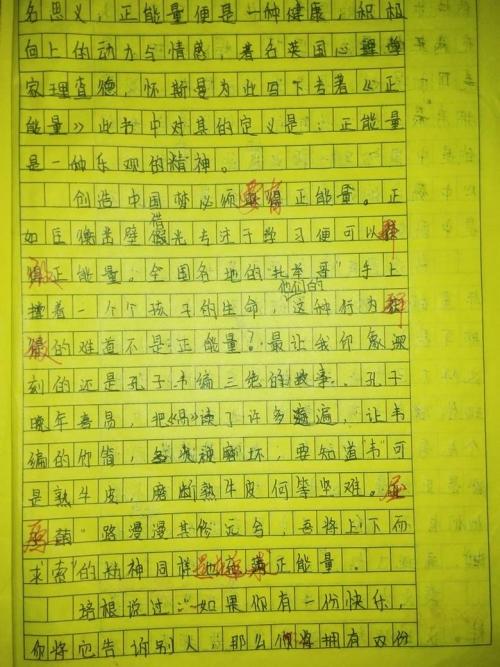 名思义，正能量便是一种健康，积极
向上的动力与情感，著名英国心理学
家理查德 怀斯曼为此写下专著《正
能量》此书中对其的定义是：正能量
是一种乐观的精神。
创造中国梦必须要有正能量。正
如匡衡凿壁借光专注于学习便可以释
放正能量。全国各地的"托举哥"手上
撑着一个个孩子的生命，他们的这种行为释
放的难道不是正能量？最让我印象深
刻的还是孔子韦编三绝的故事。孔子
晚年喜易，把《易》读了许多遍，让韦
编的竹简，磨坏，要知道"韦"可
是熟牛皮，磨断熟牛皮何等坚难。屈
原"路漫漫其修远兮，吾将上下而
求索"的精神同样也是正能量。
培根说过："如果你有一份快乐，
你将它告诉别人，那么你将拥有两份